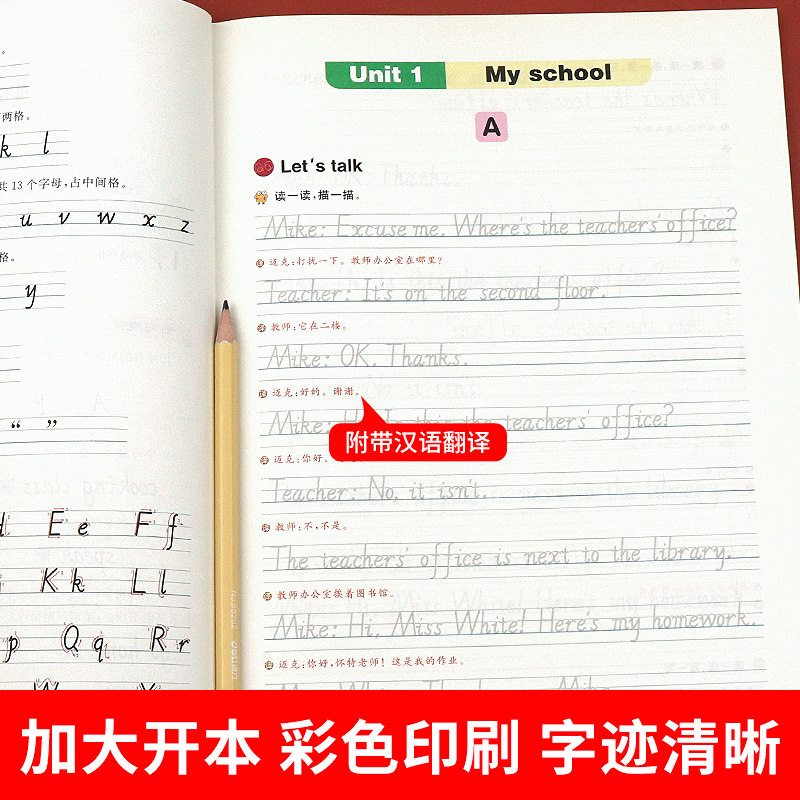 两格。
k l
共 13 个字母,占中间格。
u v w x z
格。
y
“ ”
E e F f
K k L l
p Q q R r
Unit 1 My school
A
Let's talk
读一读,描一描。
Mike: Excuse me. Where's the teachers' office?
译 迈克:打扰一下。教师办公室在哪里?
Teacher: It's on the second floor.
译 教师:它在二楼。
Mike: OK. Thanks.
译 迈克:好的。谢谢。
Mike: this the teachers' office?
附带汉语翻译
译 迈克:你好。
Teacher: No, it isn't.
译 教师:不,不是。
The teachers' office is next to the library.
译 教师办公室挨着图书馆。
Mike: Hi, Miss White! Here's my homework.
译 迈克:你好,怀特老师!这是我的作业。
加大开本 彩色印刷 字迹清晰